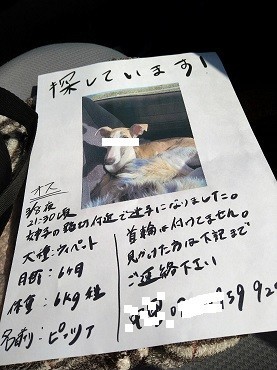 探しています!
オス
3/8 夜
21:30頃
の踏切付近で迷子になりました。
犬種:ウィペット
月齢:6ヶ月
体重:6kg程
名前:ピッツァ
首輪は付けてません。
見かけた方は下記まで
ご連絡下さい